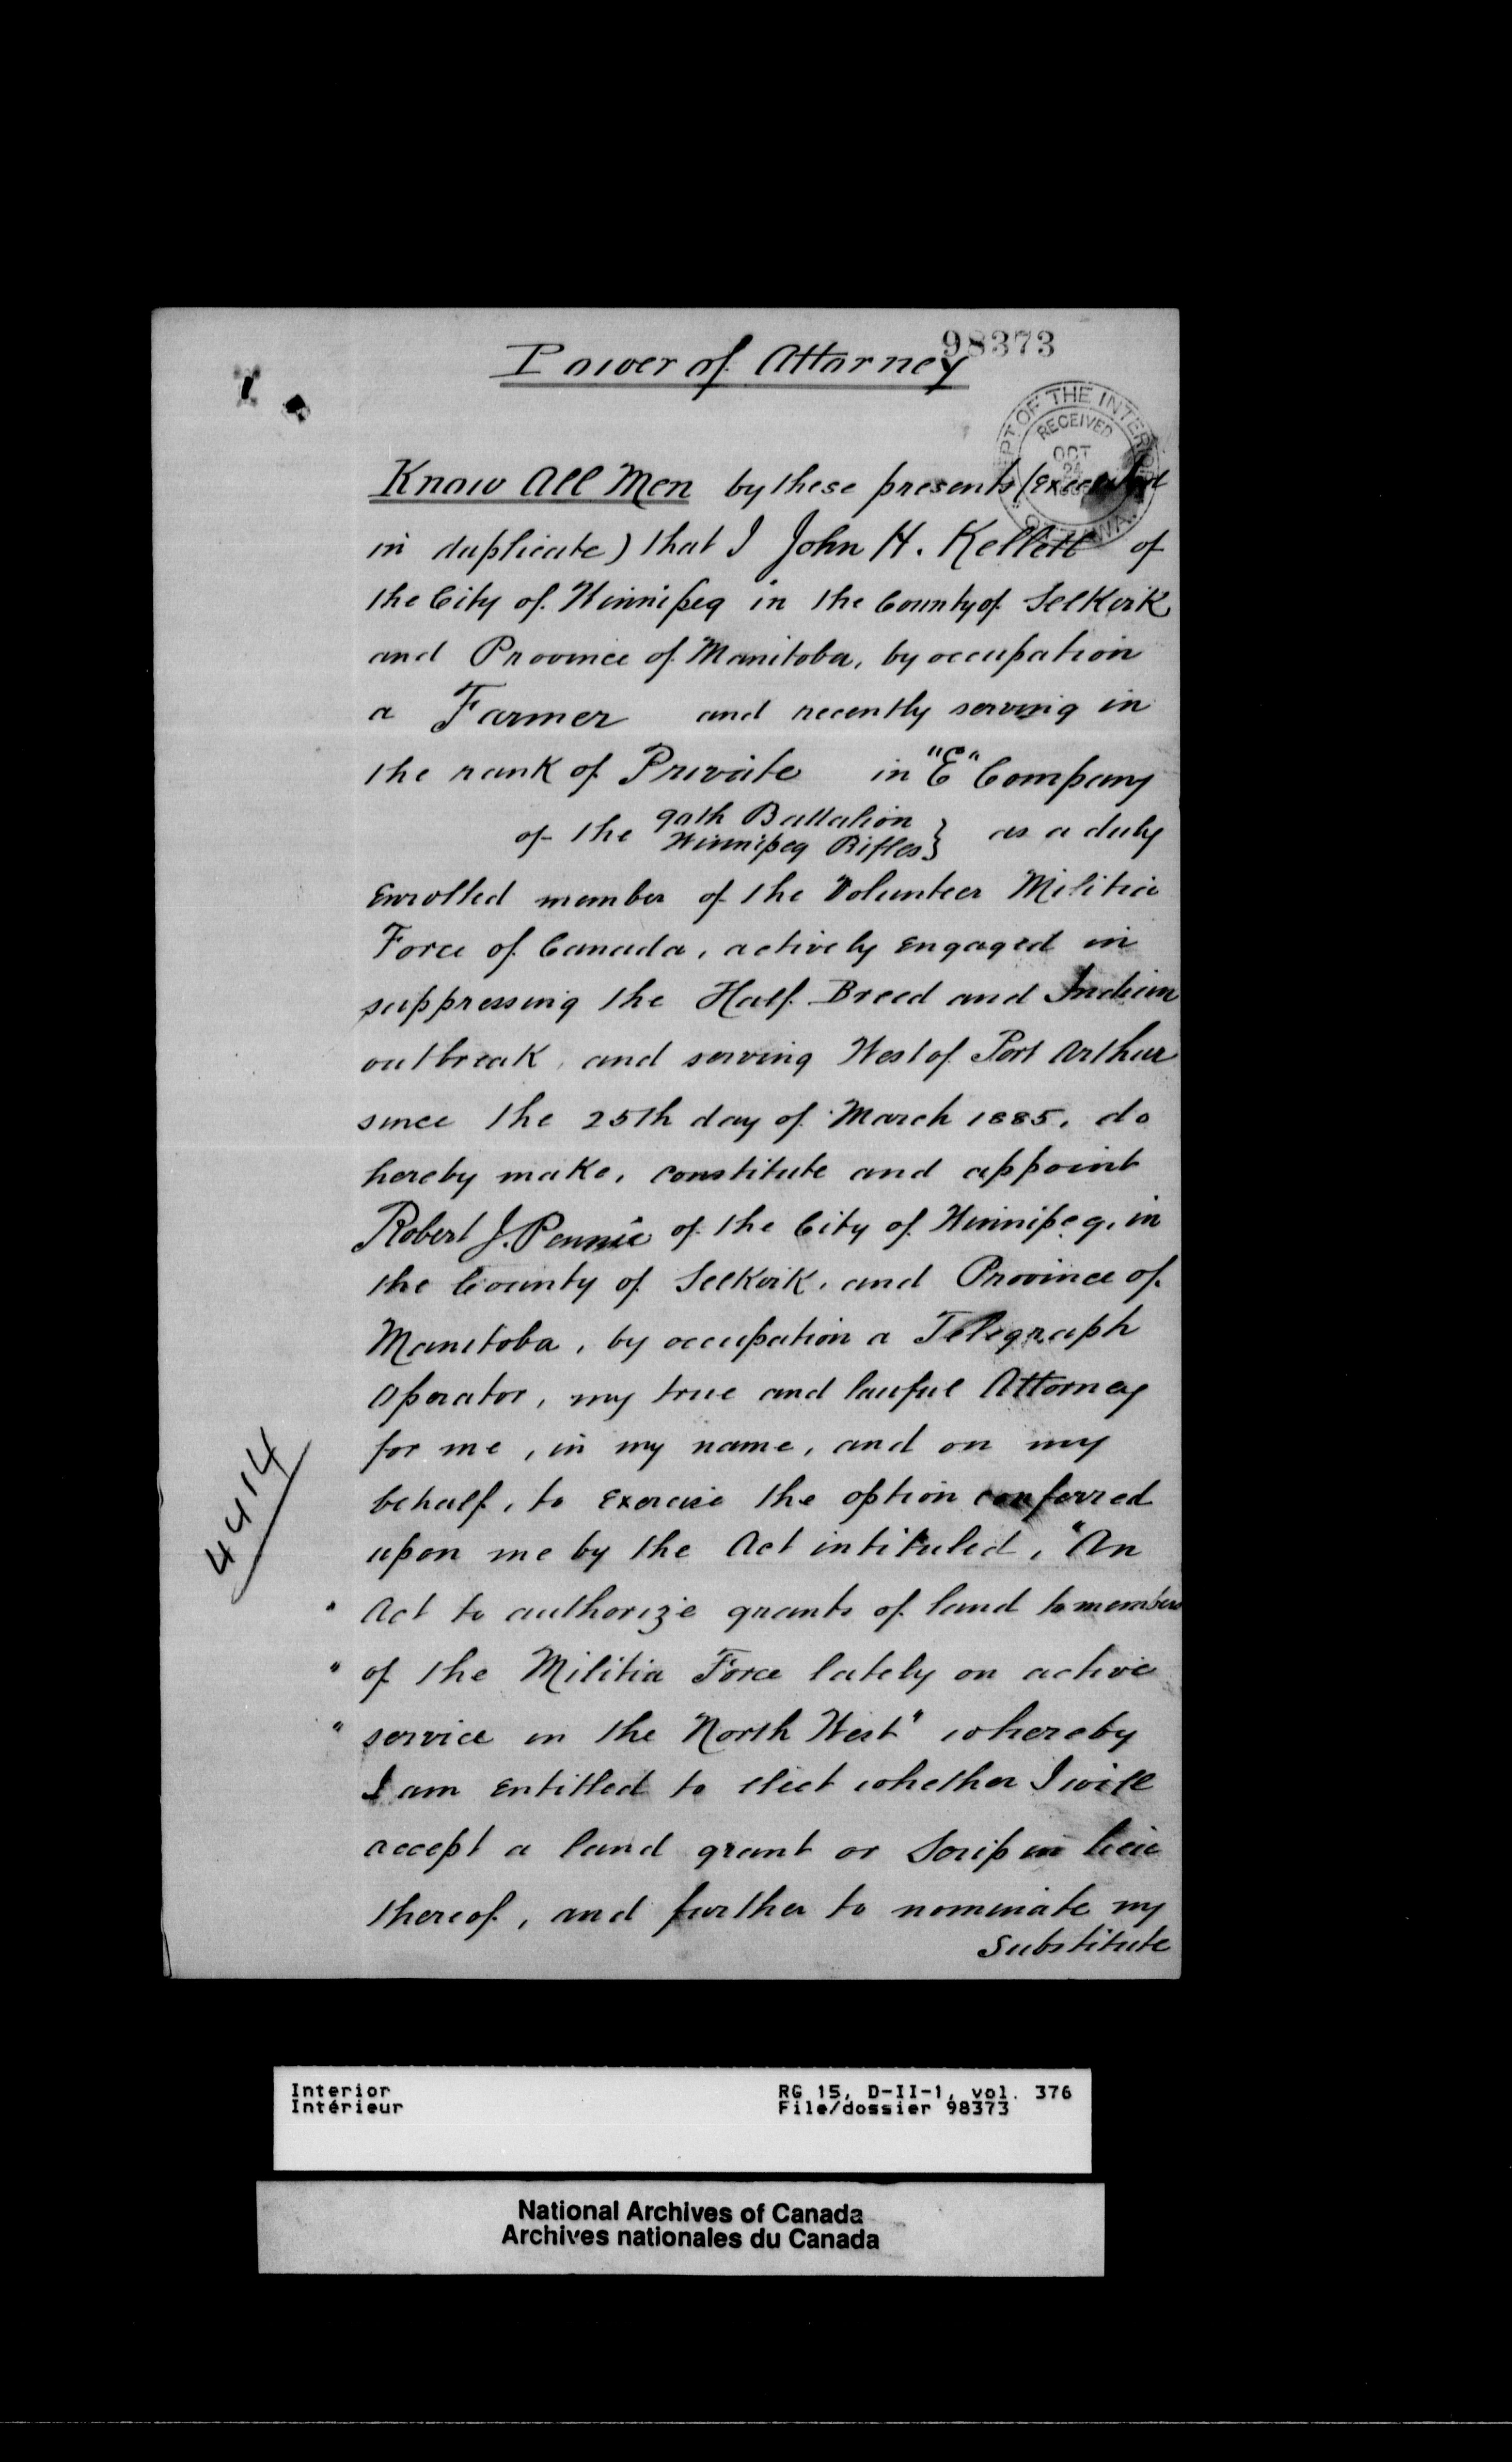 98373
Power of Attorney
DEPT OF THE INTERIOR
RECEIVED
OCT
24
OTTAWA
Know All Men by these presents (executed
in duplicate) that I John H. Kellett of
the City of Winnipeg in the County of Selkirk
and Province of Manitoba, by occupation
a Farmer and recently serving in
the rank of Private in "E" Company
of the 90th Battalion
Winnipeg Rifles } as a duly
Enrolled member of the Volunteer Militia
Force of Canada, actively Engaged in
suppressing the Half Breed and Indian
outbreak, and serving West of Port Arthur
since the 25th day of March 1885, do
hereby make, constitute and appoint
Robert J. Pennie of the City of Winnipeg, in
the County of Selkirk, and Province of
Manitoba, by occupation a Telegraph
Operator, my true and lawful Attorney
for me, in my name, and on my
behalf, to Exercise the option conferred
upon me by the Act intituled, "An
" Act to authorize grants of land to members
" of the Militia Force lately on active
" service in the North West" whereby
I am Entitled to elect whether I will
accept a land grant or Scrip in lieu
thereof, and further to nominate my
substitute
4414
Interior
Intérieur
RG 15, D-II-1, vol. 376
File/dossier 98373
National Archives of Canada
Archives nationales du Canada